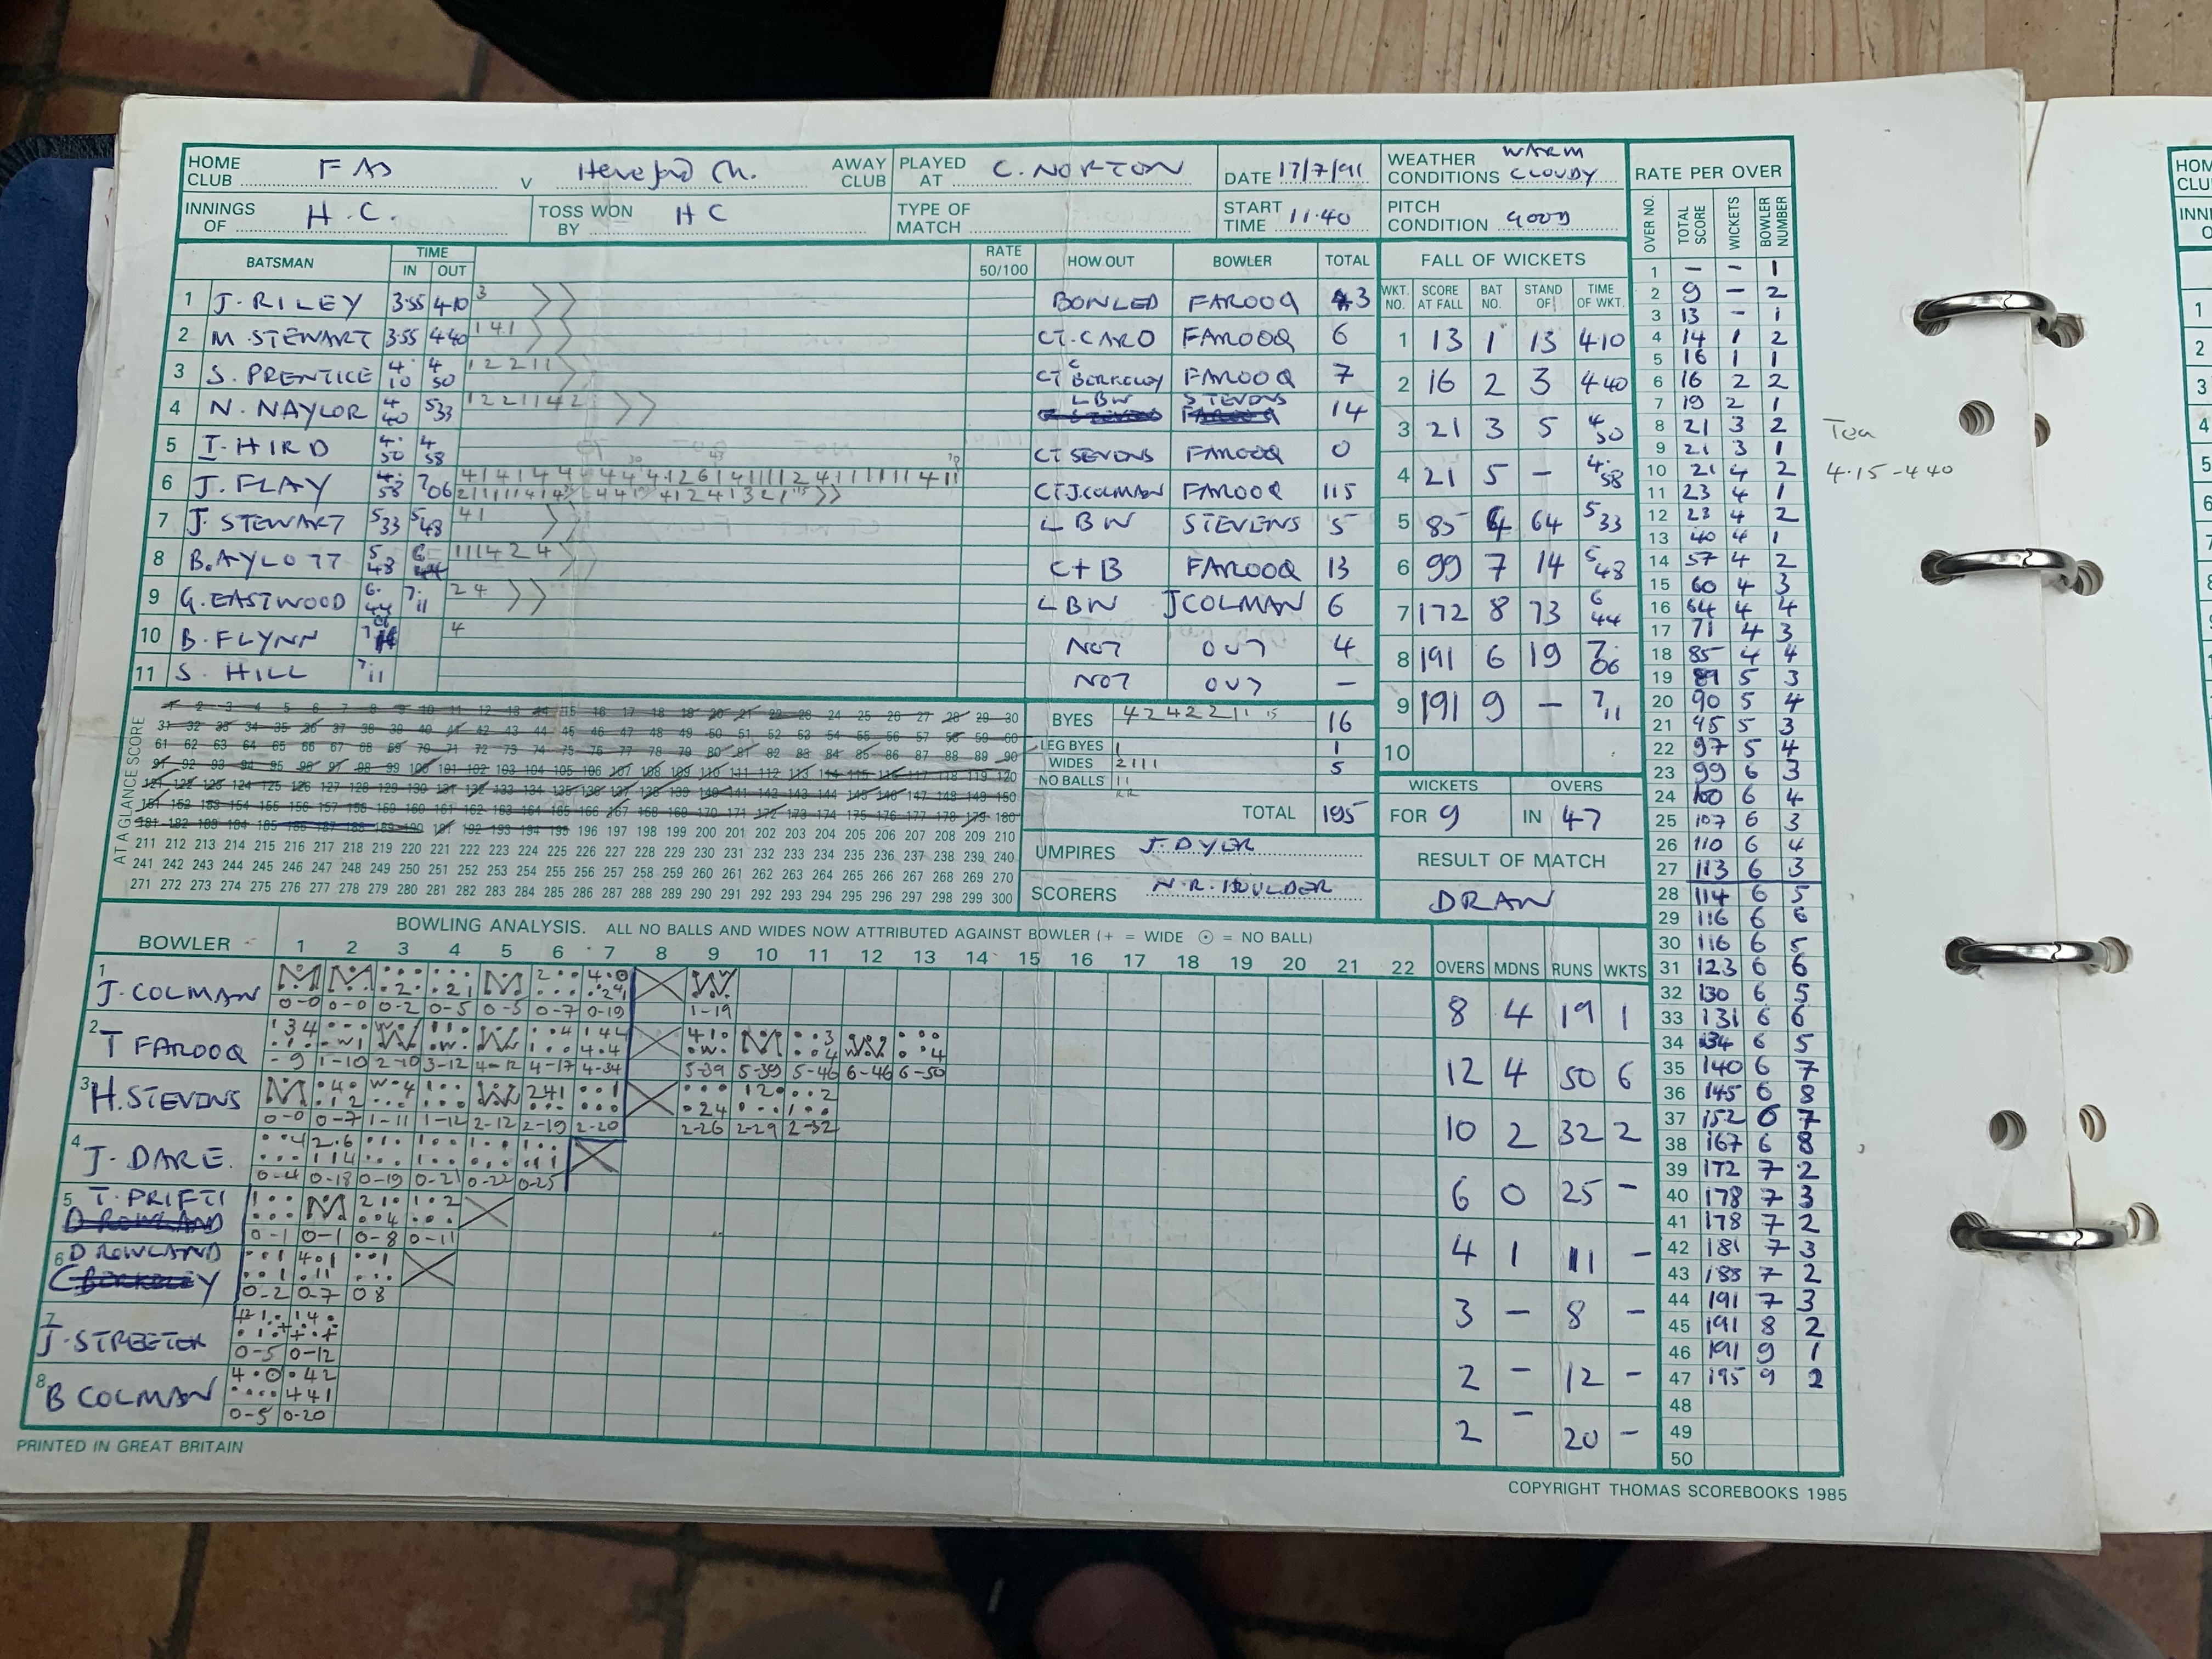 HOME CLUB F A D V Hereford Ch. AWAY CLUB PLAYED AT C. NORTON DATE 17/7/91 WEATHER CONDITIONS WARM CLOUDY
INNINGS OF H.C. TOSS WON BY H C TYPE OF MATCH START TIME 11.40 PITCH CONDITION GOOD
BATSMAN TIME IN OUT RATE 50/100 HOW OUT BOWLER TOTAL
1 J. RILEY 3.55 4.10 3 BOWLED FAROOQ 3
2 M. STEWART 3.55 4.40 1 4 1 CT. CARD FAROOQ 6
3 S. PRENTICE 4.10 4.50 1 2 2 1 1 CT C BERKELEY FAROOQ 7
4 N. NAYLOR 4.40 5.33 1 2 2 1 1 4 2 LBW STEVENS 14
5 I. HIRD 4.50 4.58 CT SEVENS FAROOQ 0
6 J. FLAY 4.58 7.06 CT J. COLMAN FAROOQ 115
7 J. STEWART 5.33 5.48 4 1 LBW STEVENS 5
8 B. AYLOTT 5.48 6.44 1 1 1 4 2 4 C + B FAROOQ 13
9 G. EASTWOOD 6.44 7.11 2 4 LBW J COLMAN 6
10 B. FLYNN 7.06 4 NOT OUT 4
11 S. HILL 7.11 NOT OUT –
FALL OF WICKETS
WKT. NO. SCORE AT FALL BAT NO. STAND OF TIME OF WKT.
1 13 1 13 4.10
2 16 2 3 4.40
3 21 3 5 4.50
4 21 5 – 4.58
5 85 4 64 5.33
6 99 7 14 5.48
7 172 8 73 6.44
8 191 6 19 7.06
9 191 9 – 7.11
10
AT A GLANCE SCORE
1 2 3 4 5 6 7 8 9 10 11 12 13 14 15 16 17 18 19 20 21 22 23 24 25 26 27 28 29 30
31 32 33 34 35 36 37 38 39 40 41 42 43 44 45 46 47 48 49 50 51 52 53 54 55 56 57 58 59 60
61 62 63 64 65 66 67 68 69 70 71 72 73 74 75 76 77 78 79 80 81 82 83 84 85 86 87 88 89 90
91 92 93 94 95 96 97 98 99 100 101 102 103 104 105 106 107 108 109 110 111 112 113 114 115 116 117 118 119 120
121 122 123 124 125 126 127 128 129 130 131 132 133 134 135 136 137 138 139 140 141 142 143 144 145 146 147 148 149 150
151 152 153 154 155 156 157 158 159 160 161 162 163 164 165 166 167 168 169 170 171 172 173 174 175 176 177 178 179 180
181 182 183 184 185 186 187 188 189 190 191 192 193 194 195 196 197 198 199 200 201 202 203 204 205 206 207 208 209 210
211 212 213 214 215 216 217 218 219 220 221 222 223 224 225 226 227 228 229 230 231 232 233 234 235 236 237 238 239 240
241 242 243 244 245 246 247 248 249 250 251 252 253 254 255 256 257 258 259 260 261 262 263 264 265 266 267 268 269 270
271 272 273 274 275 276 277 278 279 280 281 282 283 284 285 286 287 288 289 290 291 292 293 294 295 296 297 298 299 300
BYES 4 2 4 2 2 1 1 15 16
LEG BYES 1 1
WIDES 2 1 1 1 5
NO BALLS 1 1
TOTAL 195
UMPIRES J. DYER
SCORERS N. R. HOULDER
WICKETS OVERS
FOR 9 IN 47
RESULT OF MATCH
DRAW
BOWLING ANALYSIS. ALL NO BALLS AND WIDES NOW ATTRIBUTED AGAINST BOWLER (+ = WIDE ⊙ = NO BALL)
BOWLER 1 2 3 4 5 6 7 8 9 10 11 12 13 14 15 16 17 18 19 20 21 22 OVERS MDNS RUNS WKTS
1 J. COLMAN 0-0 0-0 0-2 0-5 0-5 0-7 0-19 1-19 8 4 19 1
2 T FAROOQ -9 1-10 2-10 3-12 4-12 4-17 4-34 5-39 5-39 5-46 6-46 6-50 12 4 50 6
3 H. STEVENS 0-0 0-7 1-11 1-12 2-12 2-19 2-20 2-26 2-29 2-32 10 2 32 2
4 J. DARE. 0-4 0-18 0-19 0-21 0-22 0-25 6 0 25 –
5 T. PRIFTI D ROWLAND 0-1 0-1 0-8 0-11 4 1 11 –
6 D ROWLAND C BERKELEY 0-2 0-7 0 8 3 – 8 –
7 J. STREETER 0-5 0-12 2 – 12 –
8 B COLMAN 0-5 0-20 2 – 20 –
RATE PER OVER
OVER NO. TOTAL SCORE WICKETS BOWLER NUMBER
1 – – 1
2 9 – 2
3 13 – 1
4 14 1 2
5 16 1 1
6 16 2 2
7 19 2 1
8 21 3 2
9 21 3 1
10 21 4 2
11 23 4 1
12 23 4 2
13 40 4 1
14 57 4 2
15 60 4 3
16 64 4 4
17 71 4 3
18 85 4 4
19 89 5 3
20 90 5 4
21 95 5 3
22 97 5 4
23 99 6 3
24 100 6 4
25 107 6 3
26 110 6 4
27 113 6 3
28 114 6 5
29 116 6 6
30 116 6 5
31 123 6 6
32 130 6 5
33 131 6 6
34 134 6 5
35 140 6 7
36 145 6 8
37 152 6 7
38 167 6 8
39 172 7 2
40 178 7 3
41 178 7 2
42 181 7 3
43 185 7 2
44 191 7 3
45 191 8 2
46 191 9 1
47 195 9 2
48
49
50
Tea
4.15 - 4.40
PRINTED IN GREAT BRITAIN
COPYRIGHT THOMAS SCOREBOOKS 1985